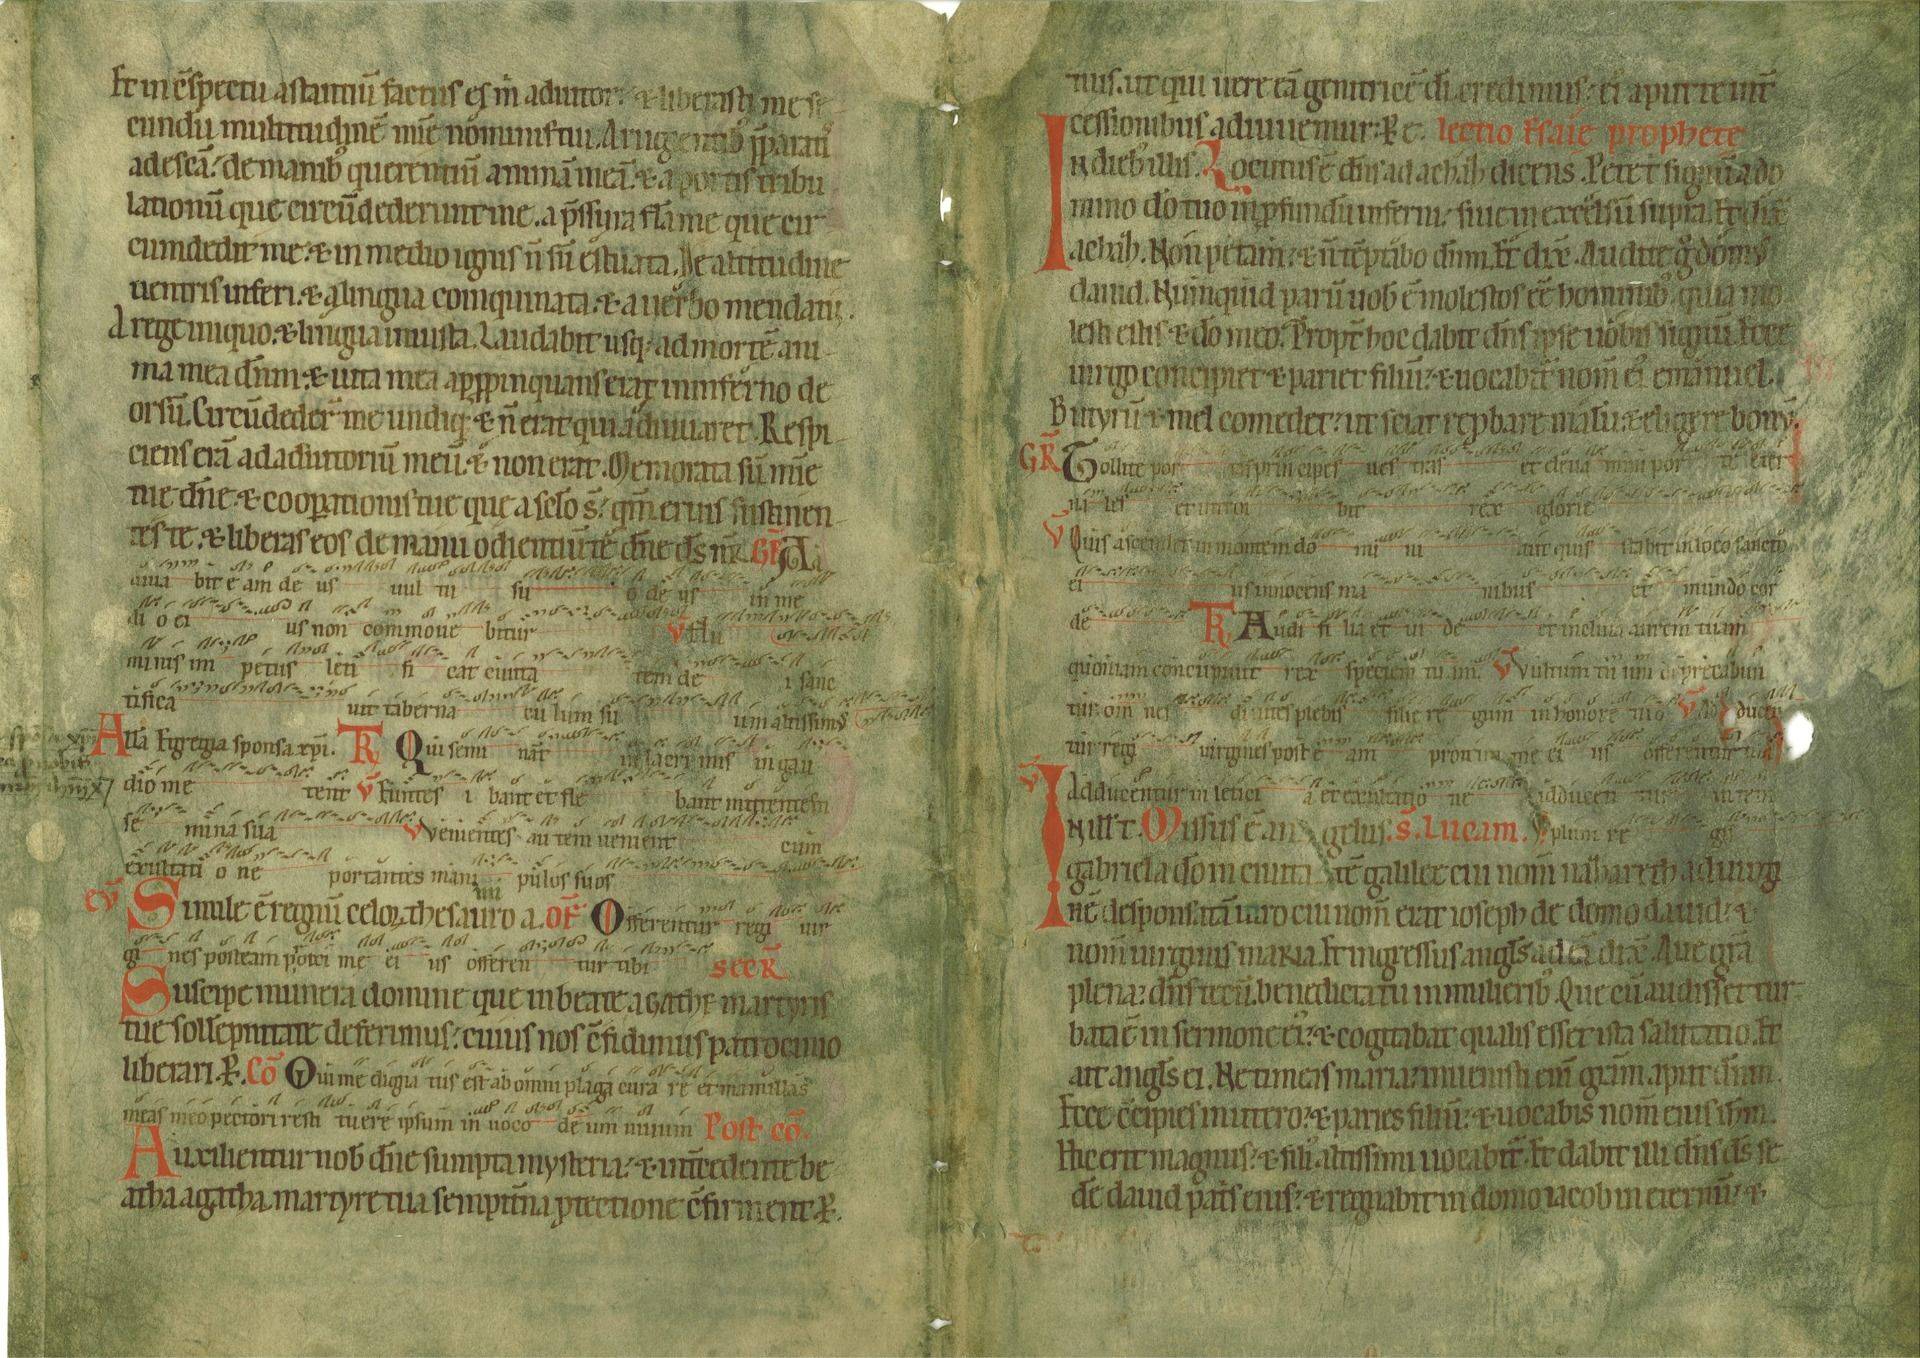 Et in ɔ̄spectu astantiū factus es m̄ adiutor: & liberasti me se
cundū multitudinē mīe nominis tui. A rugientib' p̄parati
ad escā: de manib' querentiū animā meā: & a portis tribu
lationū que circūdederunt me. a p̄ssura flāme que cir
cumdedit me: & in medio ignis n̄ sū estuata. De altitudine
uentris inferi: & a lingua coinquinata: & a uerbo mendatii.
A rege iniquo: & lingua iniusta. Laudabit usq; ad mortē ani
ma mea dn̄m: & uita mea app̱ropinquans erat in inferno de
orsū. Circūdeder̄ me undiq; & n̄ erat qui adiuuaret. Respi
ciens erā ad adiutoriū meū: & non erat. Memorata sū mīe
tue dn̄e & coop̱ationis tue que a sc̄lo s̄: qm̄ eruis sustinen
tes te: & liberas eos de manu odientiū te dn̄e ds̄ nr̄. GR̄ A
diuua bit e am de us uul tu su o de us in me
di o ei us non commoue bitur ℣ Flu
minis im petus leti fi cat ciuita tem de i sanc
tifica uit taberna cu lum su um altissimus
All'a Egregia sponsa xp̄i. TR̄ Qui semi nat in lacri mis in gau
dio me tent ℣ Euntes i bant et fle bant mittentes
se mina sua ℣ venientes au tem uenient cum
exultati o ne portantes mani pulos suos
mi
eṽ Simile ē regnū celoꝝ thesauro a. OF̄ Offerentur regi uir
gi nes post eam p̱xi me ei us offeren tur tibi SECR̄
Suscipe munera domine que in beate agathe martyris
tue sollēpnitate deferimus: cuius nos ɔ̄fidimus patrocinio
liberari. P̱. Cō Qui me digna tus est ab omni plaga cura re et mamillas
meas meo pectori resti tuere ipsum in uoco de um uiuum Post cō.
Auxilientur nob̄ dn̄e sumpta mysteria: & int̄cedente be
atha agatha martyre tua sempit̄na p̱tectione ɔ̄firment. P̱.
tuis. ut qui uere eā genitricē di credimus: ei' aput te int̄
cessionibus adiuuemur. P̱ e. lectio Esaie prophete
In dieb' illis. Locutus ē dn̄s ad achab dicens. Pete t' signū a do
mino dō tuo in p̱fundū inferni: siue in excelsū supra. Et dix̄
achab. Non petam: & n̄ tēptabo dn̄m. Et dix̄. Audite g̊ domus
dauid. Numquid parū uob̄ ē molestos eē hominib': quia mo
lesti estis & dō meo. Propt̄ hoc dabit dn̄s ipse uobis signū. Ecce
uirgo concipiet & pariet filiū: & uocabit̄ nom̄ ei' emanuel.
Butyrū & mel comedet: ut sciat rep̱bare malū: & eligere bonū.
GR̄ Tollite por tas principes ues tras et eleua mini por te eter
na les et introi bit rex glorie
℣ Quis ascendet in montem do mi ni aut quis stabit in loco sancto
ei us innocens ma nibus et mundo cor
de TR̄ Audi fi lia et ui de et inclina aurem tuam
quoniam concupiuit rex speciem tu am ℣ Vultum tu um deprecabun
tur om nes diuites plebis filie re gum in honore tuo ℣ Ad ducen
tur regi uirgines post e am proxime ei us offerentur tibi
℣ Adducentur in letici a et exultatio ne adducen tur in tem
In ill' t. Missus ē an gelus s̄. Lucam. plum re gis
gabriel a dō in ciuita tē galilee cui nom̄ nazareth ad uirgi
nē desponsatā uiro cui nom̄ erat ioseph de domo dauid: &
nom̄ uirginis maria. Et ingressus angl̄s ad eā dix̄. Aue grā
plena: dn̄s tecū: benedicta tu in mulierib'. Que cū audisset tur
bata ē in sermone ei': & cogitabat qualis esset ista salutatio. Et
ait angl̄s ei. Ne timeas maria: inuenisti eni grām aput dn̄m.
Ecce ɔ̄cipies in utero: & paries filiū: & uocabis nom̄ eius ih̄m.
Hic erit magnus: & fili' altissimi uocabit̄. Et dabit illi dn̄s ds̄ se
dē dauid pat̄s eius: & regnabit in domo iacob in eternū: &